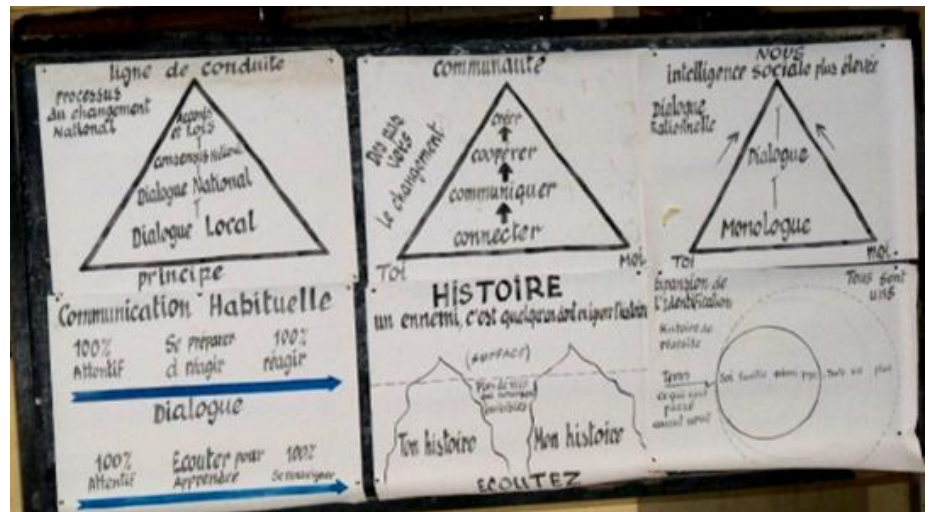 ligne de conduite
Processus
du changement
National
Accords
et Lois
consensus
Dialogue National
Dialogue Local
principe
communauté
Le changement
créer
coopérer
communiquer
connecter
Toi
Moi
NOUS
intelligence sociale plus élevée
Dialogue
Rationnelle
Dialogue
Monologue
Toi
Moi.
Communication Habituelle
100%
Attentif
Se préparer
à réagir
100%
réagir
Dialogue
100%
Attentif
Ecouter pour
Apprendre
100%
Se renseigner
HISTOIRE
un ennemi, c'est quelqu'un dont on ignore l'histoire
(SURFACE)
Ton histoire
Mon histoire
ECOUTEZ
Expansion de
l'identification
Tous sont
unis
Histoire de
réussite